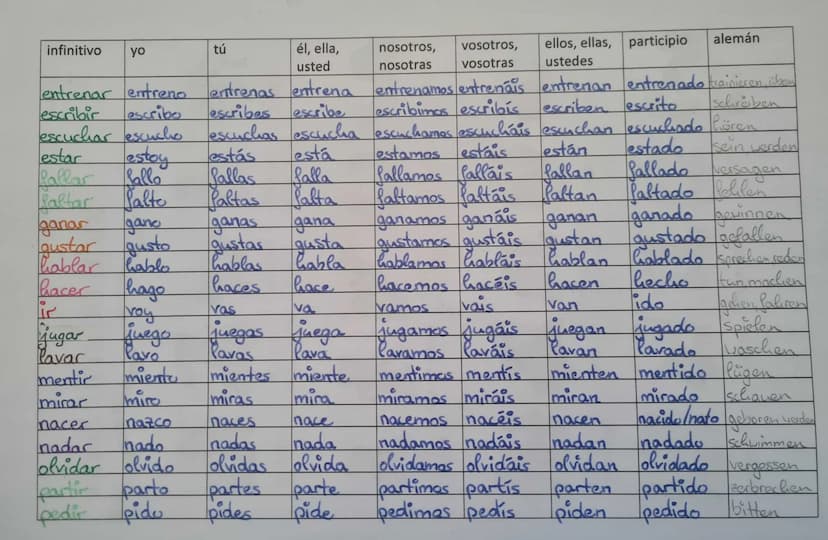 infinitivo yo tú él, ella, usted nosotros, nosotras vosotros, vosotras ellos, ellas, ustedes participio alemán
entrenar entreno entrenas entrena entrenamos entrenáis entrenan entrenado trainieren, üben
escribir escribo escribes escribe escribimos escribís escriben escrito schreiben
escuchar escucho escuchas escucha escuchamos escucháis escuchan escuchado hören
estar estoy estás está estamos estáis están estado sein werden
fallar fallo fallas falla fallamos falláis fallan fallado versagen
faltar falto faltas falta faltamos faltáis faltan faltado fehlen
ganar gano ganas gana ganamos ganáis ganan ganado gewinnen
gustar gusto gustas gusta gustamos gustáis gustan gustado gefallen
hablar hablo hablas habla hablamos habláis hablan hablado sprechen reden
hacer hago haces hace hacemos hacéis hacen hecho tun machen
ir voy vas va vamos vais van ido gehen fahren
jugar juego juegas juega jugamos jugáis juegan jugado spielen
lavar lavo lavas lava lavamos laváis lavan lavado waschen
mentir miento mientes miente mentimos mentís mienten mentido lügen
mirar miro miras mira miramos miráis miran mirado schauen
nacer nazco naces nace nacemos nacéis nacen nacido/nato geboren werden
nadar nado nadas nada nadamos nadáis nadan nadado schwimmen
olvidar olvido olvidas olvida olvidamos olvidáis olvidan olvidado vergessen
partir parto partes parte partimos partís parten partido zerbrechen
pedir pido pides pide pedimos pedís piden pedido bitten